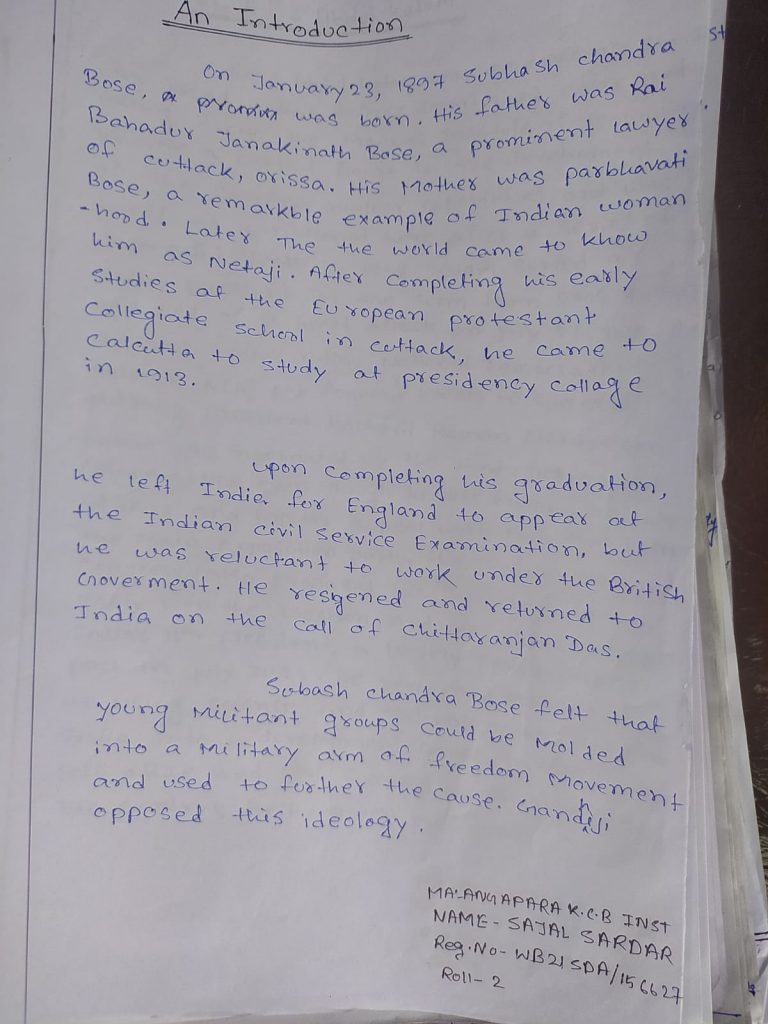 An Introduction
On January 23, 1897 Subhash chandra
Bose, a was born. His father was Rai
Bahadur Janakinath Bose, a prominent lawyer
of cuttack, orissa. His Mother was parbhavati
Bose, a remarkble example of Indian woman
-hood. Later The the world came to know
him as Netaji. After completing his early
Studies at the European protestant
Collegiate school in cuttack, he came to
Calcutta to study at presidency collage
in 1913.
upon completing his graduation,
he left India for England to appear at
the Indian civil service Examination, but
he was reluctant to work under the British
Goverment. He resigened and returned to
India on the call of Chittaranjan Das.
Subash chandra Bose felt that
young militant groups could be molded
into a military arm of freedom movement
and used to further the cause. Gandhiji
opposed this ideology.
MALANGAPARA K.C.B INST
NAME - SAJAL SARDAR
Reg.No- WB21SDA/156627
Roll- 2